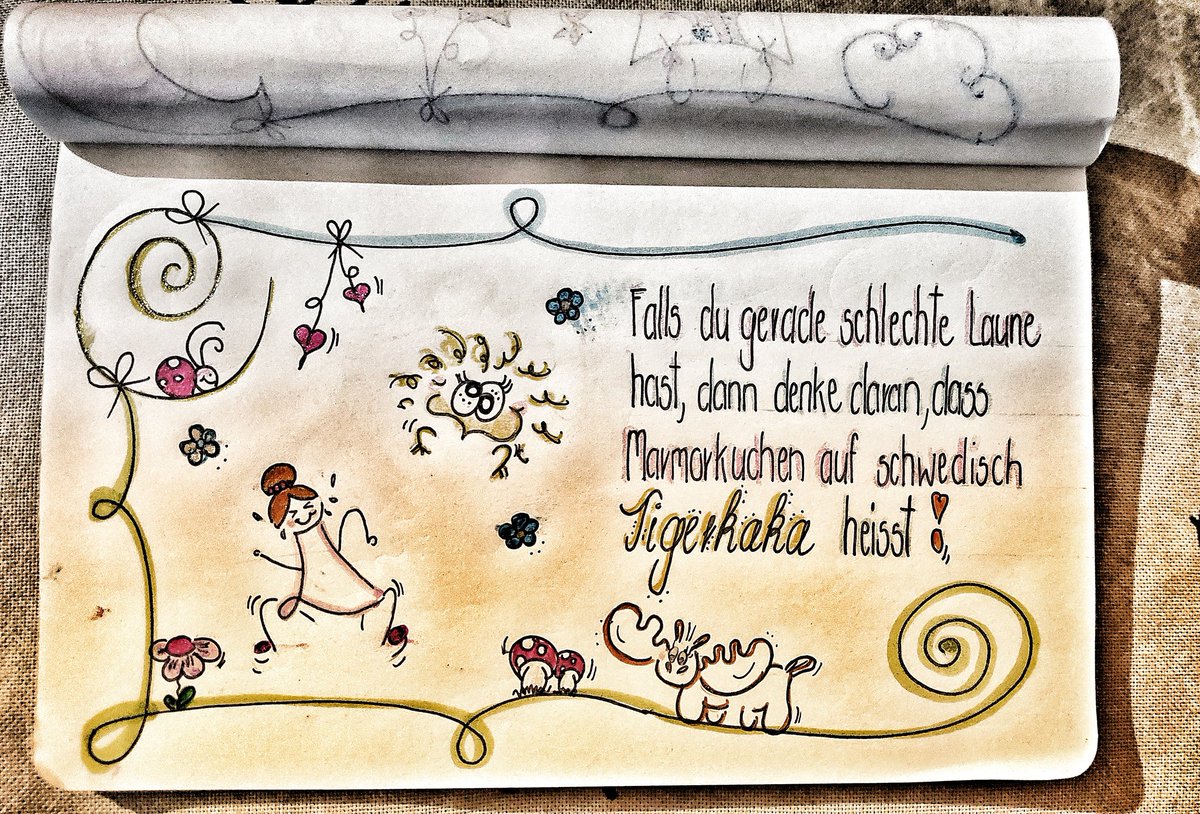 Falls du gerade schlechte Laune
hast, dann denke daran, dass
Marmorkuchen auf schwedisch
Tigerkaka heisst!